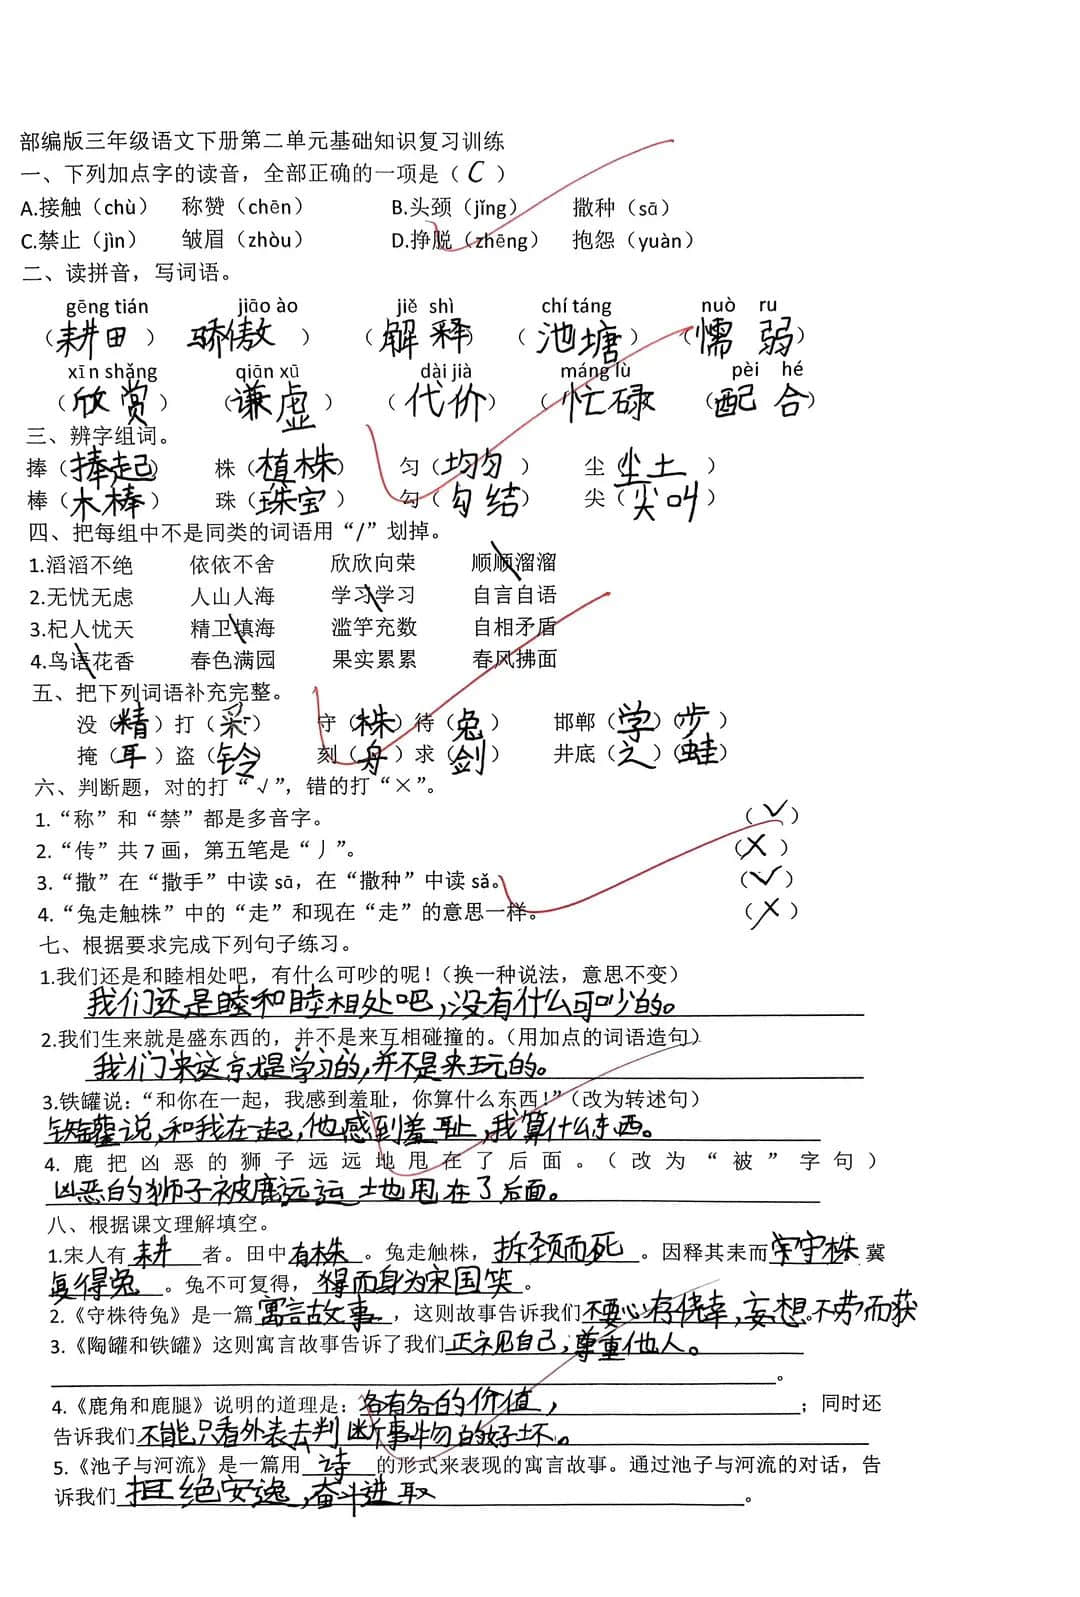 部编版三年级语文下册第二单元基础知识复习训练
一、下列加点字的读音，全部正确的一项是（ C ）
A.接触（chù） 称赞（chēn） B.头颈（jǐng） 撒种（sā）
C.禁止（jìn） 皱眉（zhòu） D.挣脱（zhēng） 抱怨（yuàn）
二、读拼音，写词语。
gēng tián jiāo ào jiě shì chí táng nuò ru
（耕田） 骄傲） （解释） （池塘） （懦弱）
xīn shǎng qiān xū dài jià máng lù pèi hé
（欣赏） （谦虚） （代价） （忙碌） （配合）
三、辨字组词。
捧（捧起） 株（植株） 匀（均匀） 尘（尘土）
棒（木棒） 珠（珠宝） 勾（勾结） 尖（尖叫）
四、把每组中不是同类的词语用“/”划掉。
1.滔滔不绝 依依不舍 欣欣向荣 顺顺溜溜
2.无忧无虑 人山人海 学习学习 自言自语
3.杞人忧天 精卫填海 滥竽充数 自相矛盾
4.鸟语花香 春色满园 果实累累 春风拂面
五、把下列词语补充完整。
没（精）打（采） 守（株）待（兔） 邯郸（学）（步）
掩（耳）盗（铃） 刻（舟）求（剑） 井底（之）（蛙）
六、判断题，对的打“√”，错的打“×”。
1.“称”和“禁”都是多音字。 （√）
2.“传”共 7 画，第五笔是“丿”。 （×）
3.“撒”在“撒手”中读 sā，在“撒种”中读 sǎ。 （√）
4.“兔走触株”中的“走”和现在“走”的意思一样。 （×）
七、根据要求完成下列句子练习。
1.我们还是和睦相处吧，有什么可吵的呢！（换一种说法，意思不变）
我们还是睦和睦相处吧，没有什么可吵的。
2.我们生来就是盛东西的，并不是来互相碰撞的。（用加点的词语造句）
我们来这就是学习的，并不是来玩的。
3.铁罐说：“和你在一起，我感到羞耻，你算什么东西！”（改为转述句）
铁罐说，和我在一起，他感到羞耻，我算什么东西。
4. 鹿把凶恶的狮子远远地甩在了后面。（改为“被”字句）
凶恶的狮子被鹿远远地甩在了后面。
八、根据课文理解填空。
1.宋人有 耕 者。田中 有株 。兔走触株， 折颈而死 。因释其耒而 守株 冀
复得兔 。兔不可复得， 得而身为宋国笑 。
2.《守株待兔》是一篇 寓言故事 ，这则故事告诉我们 不要心存侥幸，妄想不劳而获
3.《陶罐和铁罐》这则寓言故事告诉了我们 正视自己，尊重他人。
。
4.《鹿角和鹿腿》说明的道理是： 各有各的价值， ；同时还
告诉我们 不能只看外表去判断事物的好坏。
5.《池子与河流》是一篇用 诗 的形式来表现的寓言故事。通过池子与河流的对话，告
诉我们 拒绝安逸，奋斗进取 。